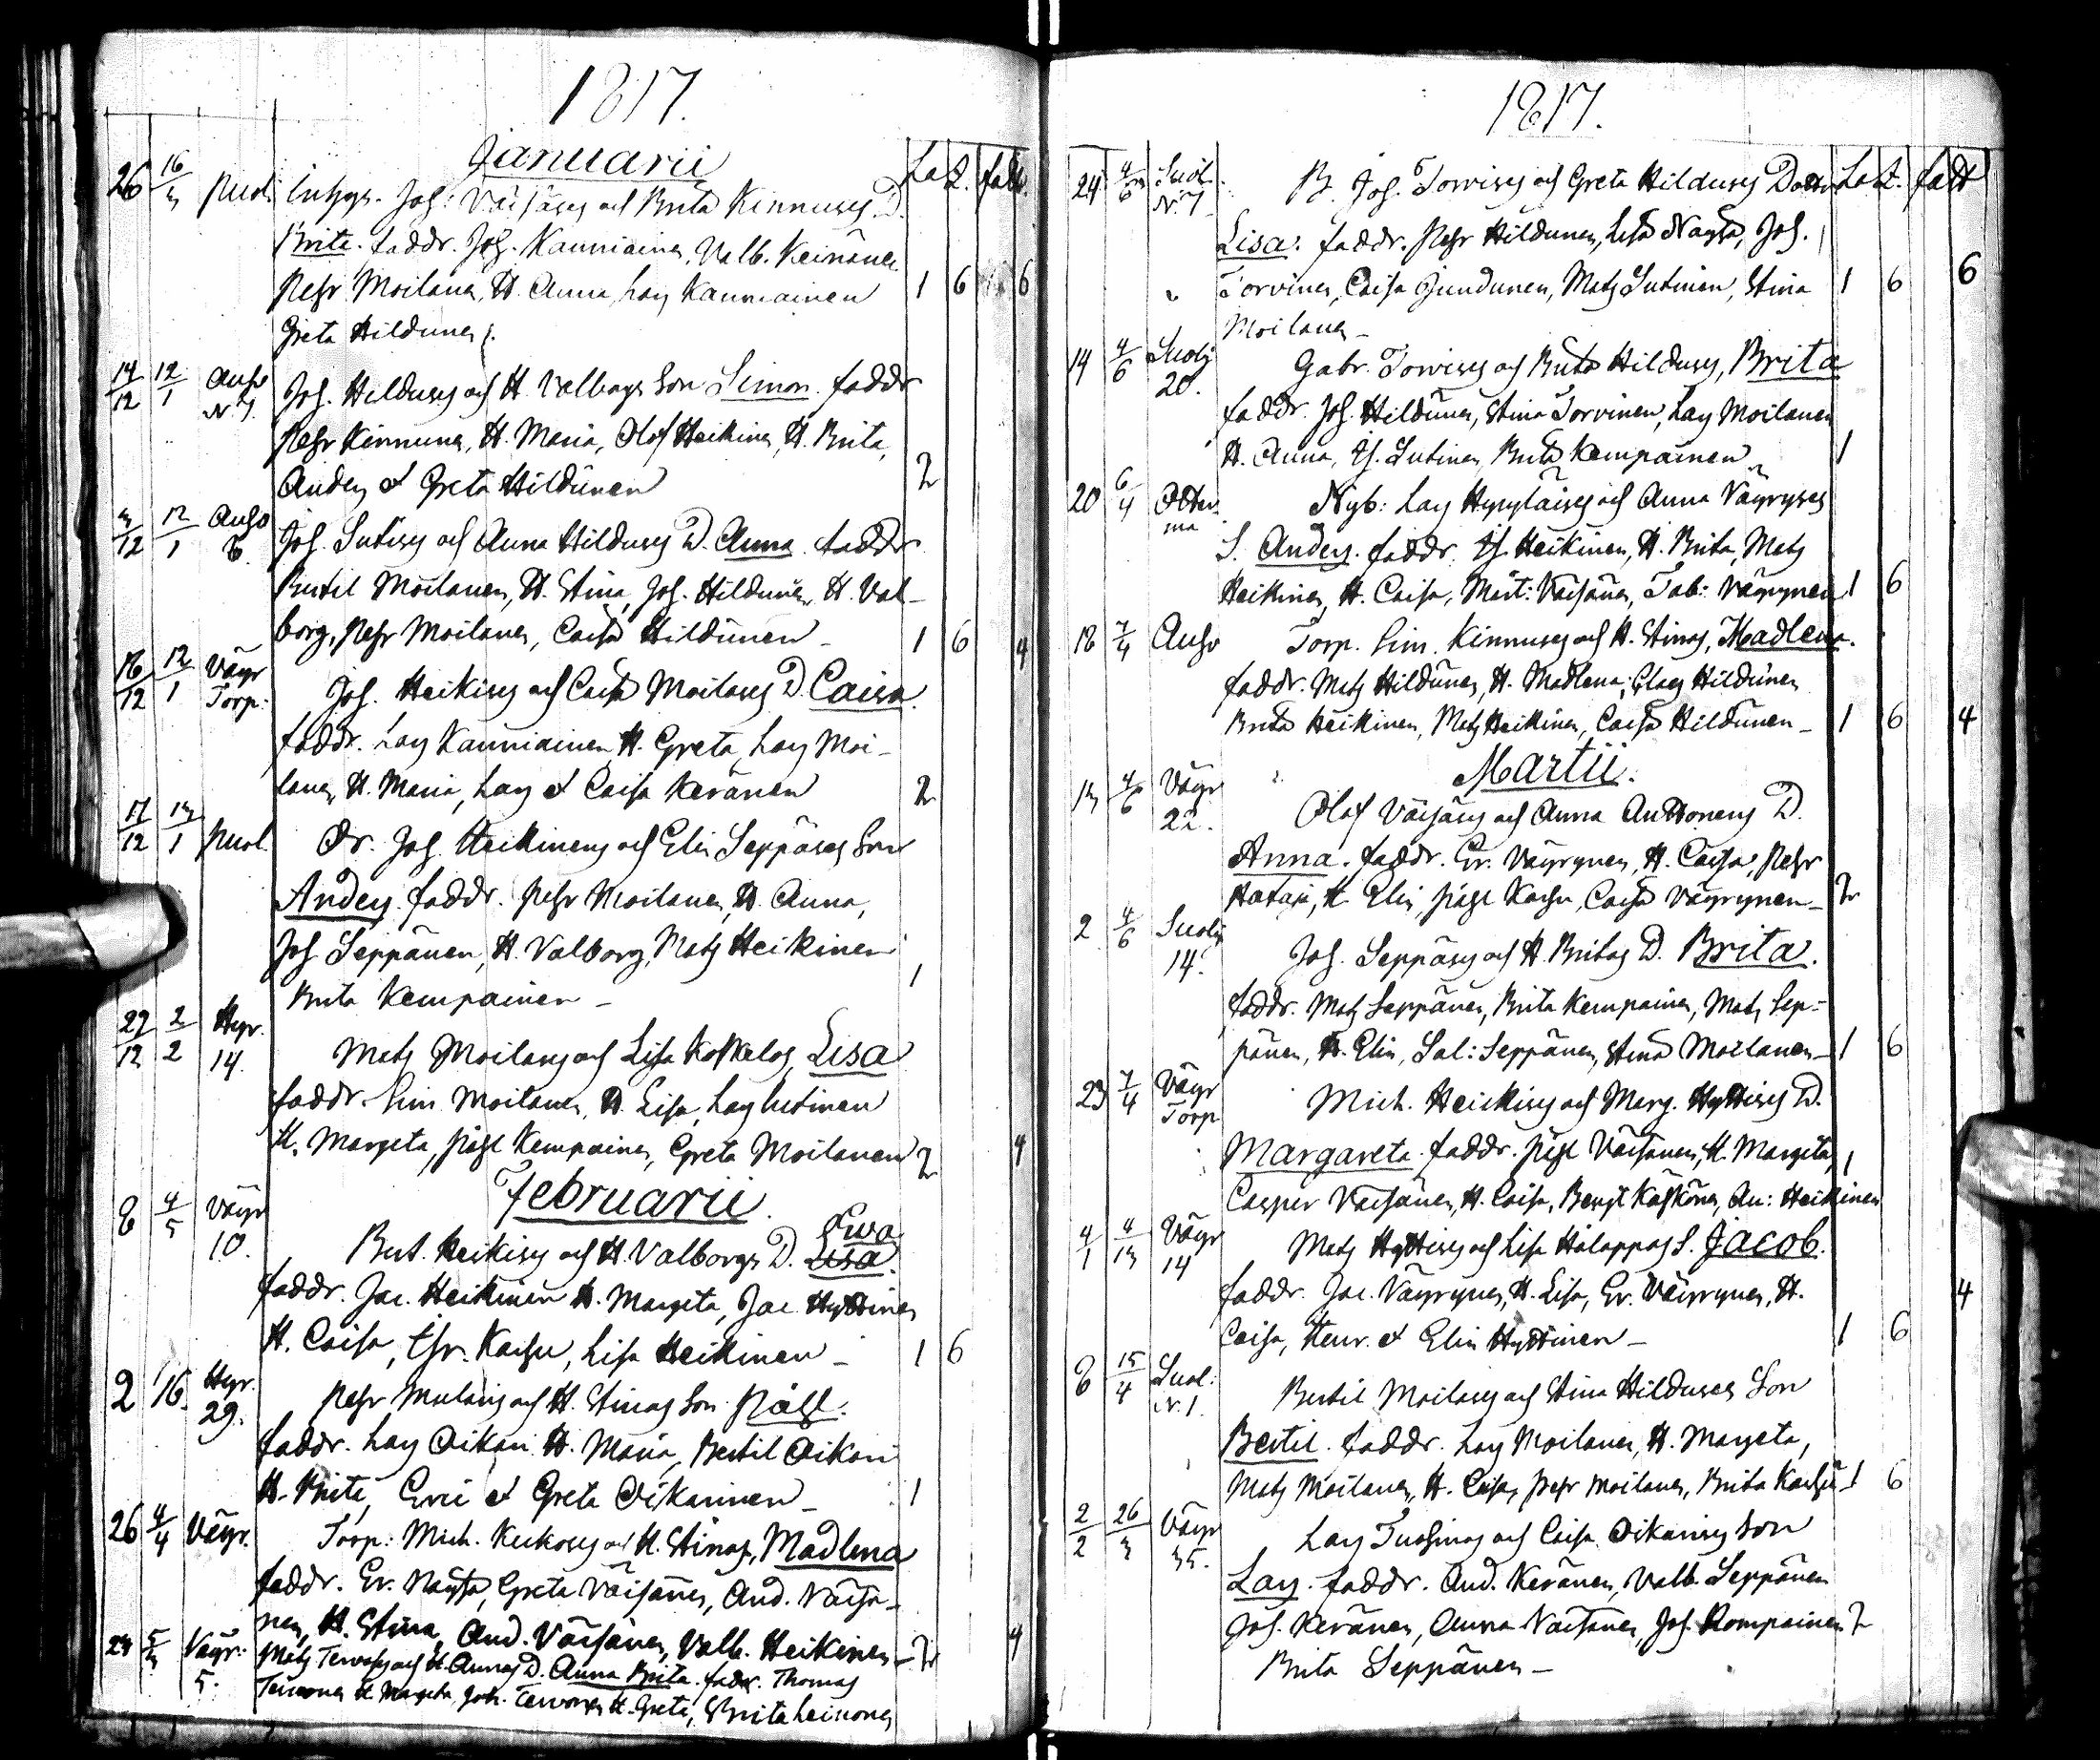 1817.
Januarii
26 16/3 Puol. Inhys. Joh. Väisäns och Brita Kinnunens D.
Brita. faddr. Joh. Kauniainen, Valb. Keinänen
Pehr Moilanen, H. Anna, Lars Kauniainen 1 6 6
Greta Hildunen.
14/12 12/1 Auho N. 7. Joh. Hilduns och H. Valborgs Son Simon. faddr
Pehr Kinnunen, H. Maria, Olof Heikinen, H. Brita,
Anders & Greta Hildunen 2
3/12 12/1 Auho 6. Joh. Sutins och Anna Hilduns D. Anna. faddr
Bertil Moilanen, H. Stina, Joh. Hildunen, H. Val-
borg, Pehr Moilanen, Caisa Hildunen 1 6 4
16/12 12/1 Väyr Torp: Joh. Heikins och Caisa Moilans D. Caisa.
faddr. Lars Kauniainen, H. Greta, Lars Moi-
lanen, H. Maria, Lars & Caisa Keränen 2
17/12 13/1 Puol. Dr. Joh. Heikinens och Elin Seppäns Son
Anders. faddr. Pehr Moilanen, H. Anna,
Joh Seppänen, H. Valborg, Mats Heikinen 1
Brita Kempainen
22/12 2/2 Hyr. 14. Mats Moilans och Lisa Koskelos, Lisa
faddr. Sim Moilanen, H. Lisa, Lars Lutinen
H. Margeta, Påhl Kempainen, Greta Moilanen 2 4
Februarii
8 4/5 Väyr 10. Bert. Heikins och H. Valborgs D. Lisa Ewa.
faddr. Jac. Heikinen H. Margeta, Jac. Hyttinen
H. Caisa, Chr. Karhu, Lisa Heikinen 1 6
2 16. Hyr. 29. Pehr Mulins och H. Stinas Son Påhl.
faddr. Lars Oikari H. Maria, Bertil Oikari
H. Brita, Eric & Greta Oikarinen 1
26 4/4 Väyr. Torp: Mich. Keikos och H. Stinas, Madlena
faddr. Er. Naysa, Greta Väisänen, And. Väisä-
nen, H. Stina, And. Väisänen, Valb. Heikinen 2 4
24 5/3 Väyr: 5. Mats Tervos och H. Annas D. Anna Brita. faddr. Thomas
Tervonen H. Margeta, Joh. Tervonen H. Greta, Brita Leinonen
1817.
24 4/6 Suol. N. 7 B. Joh. Torvins och Greta Hilduns Dotter
Lisa. faddr. Pehr Hildunen, Lisa Naysa, Joh.
Torvinen, Caisa Jundunen, Mats Sutinen, Stina 1 6 6
Moilanen
14 4/6 Suolij 20. Gabr. Torvins och Brita Hilduns, Brita
faddr. Joh. Hildunen, Stina Torvinen, Lars Moilanen
H. Anna, Is. Sutinen, Brita Kempainen 1
20 6/4 Otter ma Nyb: Lars Hyrylains och Anna Väyryns
S. Anders. faddr. Is. Heikinen, H. Brita, Mats
Heikinen, H. Caisa, Mårt: Väisänen, Tab: Väyrynen 1 6
18 7/4 Auho Torp. Sim. Kinnuns och H. Stinas, Madlena.
faddr. Mats Hildunen, H. Madlena, Claes Hildunen
Brita Heikinen, Mats Heikinen, Caisa Hildunen 1 6 4
Martii.
13 4/6 Väyr 22. Olof Väisäns och Anna Anttonens D.
Anna. faddr. Er. Väyrynen, H. Caisa, Pehr
Hataja, H. Elin, Påhl Karhu, Caisa Väyrynen 2
2 4/6 Suolij 14. Joh. Seppäns och H. Britas D. Brita.
faddr. Mats Seppänen, Brita Kempainen, Mats Sep-
pänen, H. Elin, Sal: Seppänen, Stina Moilanen 1 6
23 7/4 Väyr Torp Mich. Heickins och Marg. Hyttins D.
Margareta. faddr. Påhl Väisänen, H. Margeta, 1
Casper Väisänen, H. Caisa, Bengt Kaskönen, An: Heikinen
4/1 4/13 Väyr 14 Mats Hyttins och Lisa Halappas S. Jacob.
faddr. Jac. Väyrynen, H. Lisa, Er. Väyrynen, H. 4
Caisa, Henr. & Elin Hyttinen 1 6
8 15/4 Suol: N. 1. Bertil Moilans och Stina Hilduns Son
Bertil. faddr. Lars Moilanen, H. Margeta,
Mats Moilanen, H. Caisa, Pehr Moilanen, Brita Karhu 1 6
2/2 26/3 Väyr 35. Lars Tuohinos och Caisa Oikarins Son
Lars. faddr. And. Keränen, Valb. Seppänen
Joh. Keränen, Anna Väisänen, Joh. Rompainen 2
Brita Seppänen